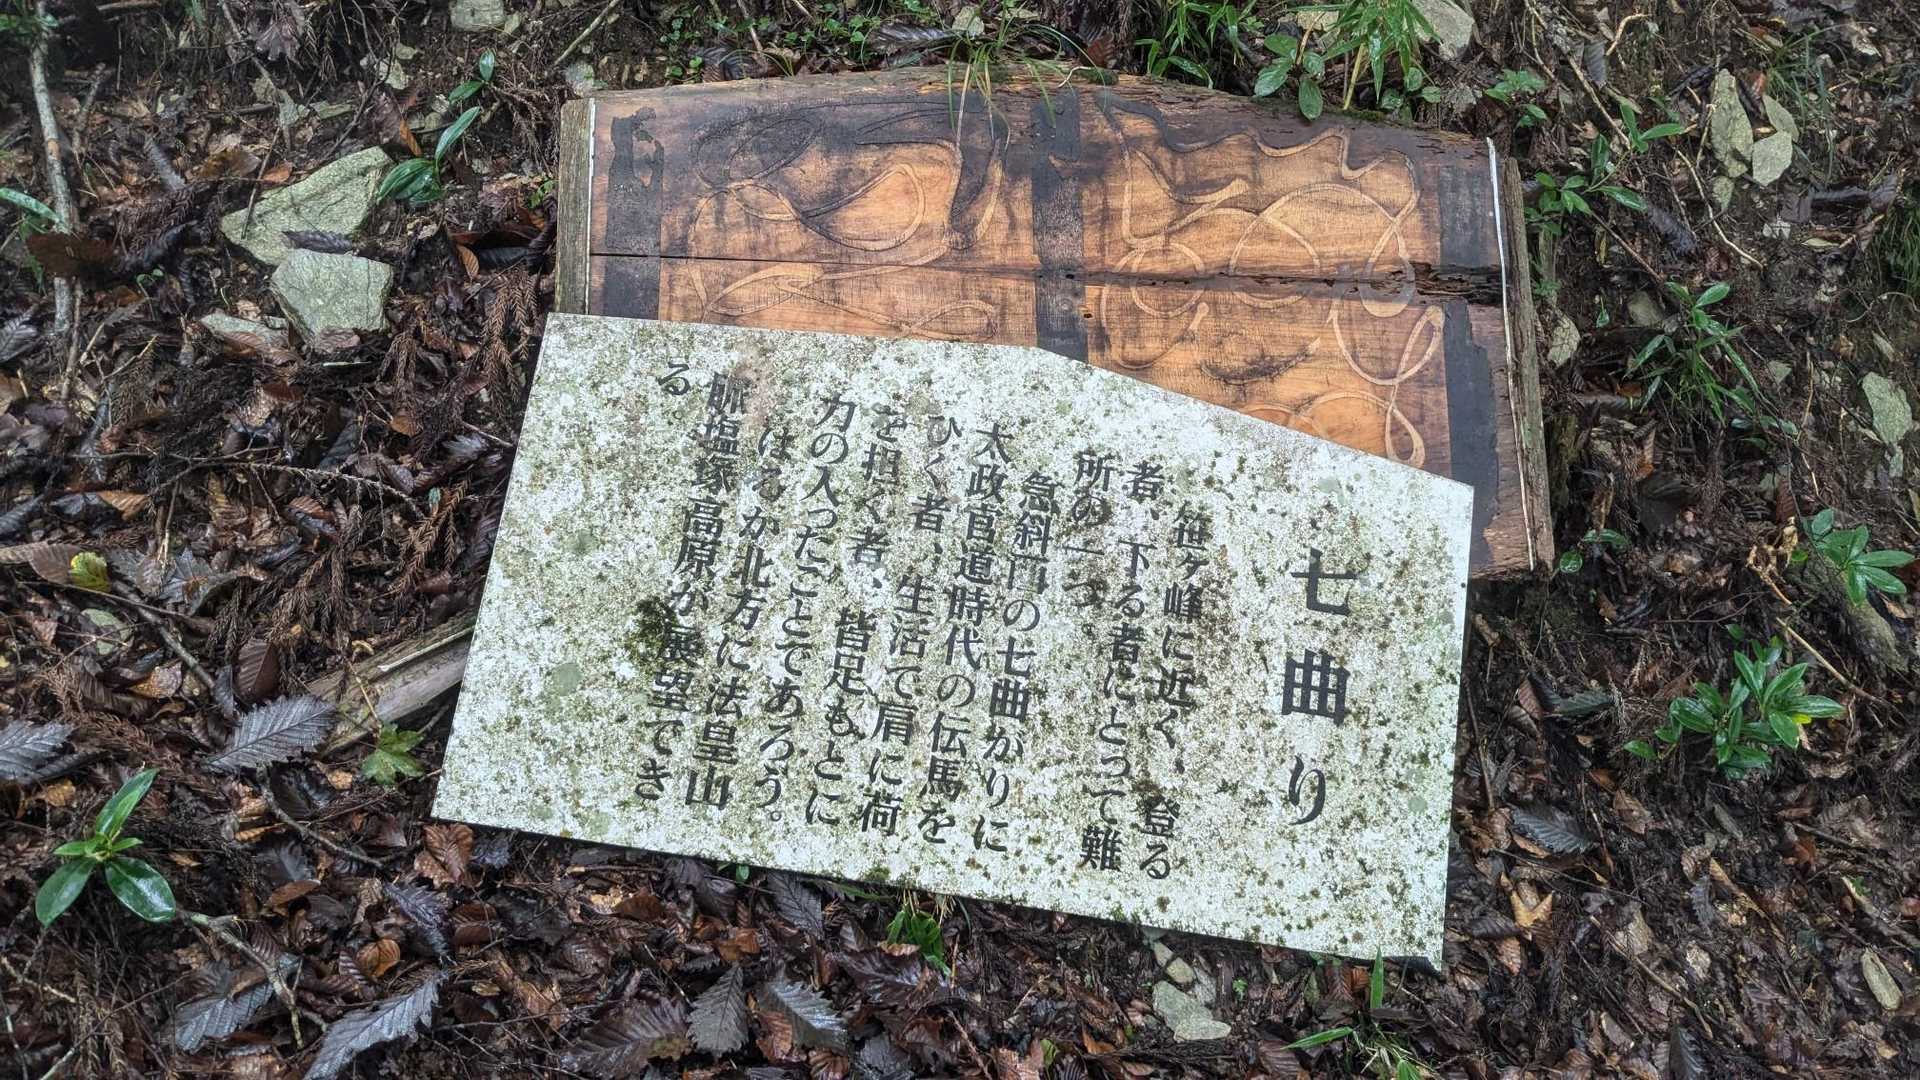 七曲り
笹ヶ峰に近く、登る
者、下る者にとって難
所の一つ。
急斜面の七曲がりに
太政官道時代の伝馬を
ひく者、生活で肩に荷
を担ぐ者、皆足もとに
力の入ったことであろう。
はるか北方に法皇山
脈塩塚高原が展望でき
る。